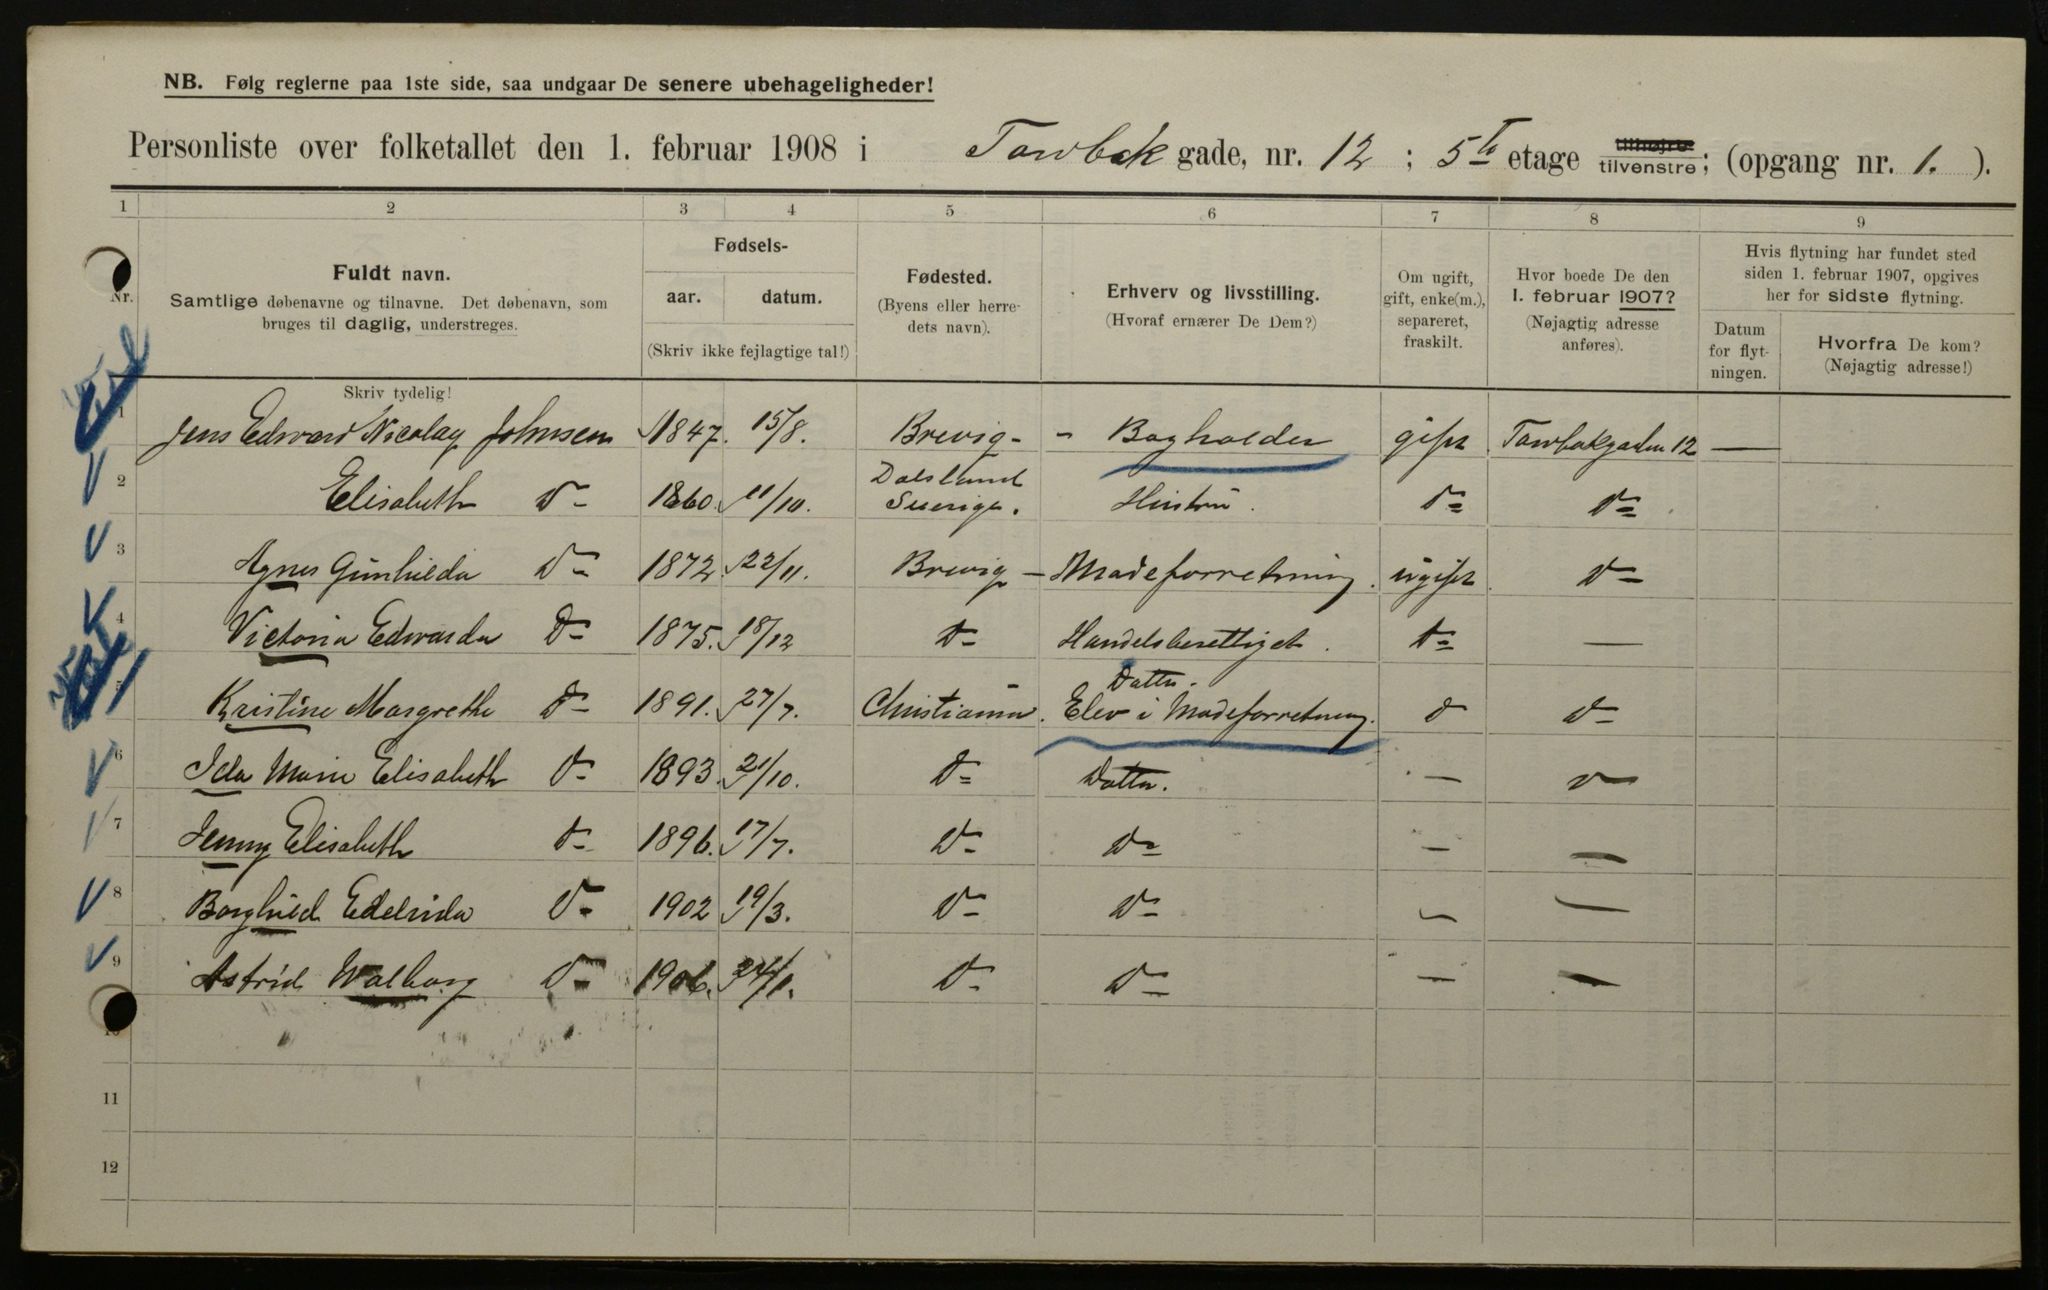 NB. Følg reglerne paa 1ste side, saa undgaar De senere ubehageligheder!
Personliste over folketallet den 1. februar 1908 i Towbak gade, nr. 12 ; 5te etage tilhøjre tilvenstre; (opgang nr. 1. ).
1 2 3 4 5 6 7 8 9
Nr.
Fuldt navn.
Samtlige døbenavne og tilnavne. Det døbenavn, som
bruges til daglig, understreges.
Skriv tydelig!
Fødsels-
aar. datum.
(Skriv ikke fejlagtige tal!)
Fødested.
(Byens eller herre-
dets navn).
Erhverv og livsstilling.
(Hvoraf ernærer De Dem?)
Om ugift,
gift, enke(m.),
separeret,
fraskilt.
Hvor boede De den
1. februar 1907?
(Nøjagtig adresse
anføres).
Hvis flytning har fundet sted
siden 1. februar 1907, opgives
her for sidste flytning.
Datum
for flyt-
ningen.
Hvorfra De kom?
(Nøjagtig adresse!)
1 Jens Edward Nicolay Johnsen 1847. 15/8. Brevig - - Bogholder gift Towbakgaden 12 —
2 Elisabeth D- 1860. 11/10. Dalsland Sverige. Hustru. D= D=
3 Agnes Gunhilda D- 1872 22/11. Brevig - Madeforretning. ugift D-
4 Victoria Edwarda D- 1875. 18/12 D- Handelsberettiget. D= —
5 Kristine Margrethe D- 1891. 27/7. Christiania. Datter. Elev i Madeforretning. D D-
6 Ida Marie Elisabeth D- 1893. 21/10. D= Datter. — D-
7 Jenny Elisabeth D- 1896. 17/7. D- D= — —
8 Borghild Edelrida D- 1902 19/3. D- D= — —
9 Astrid Walborg D- 1906. 24/1. D- D= — —
10
11
12